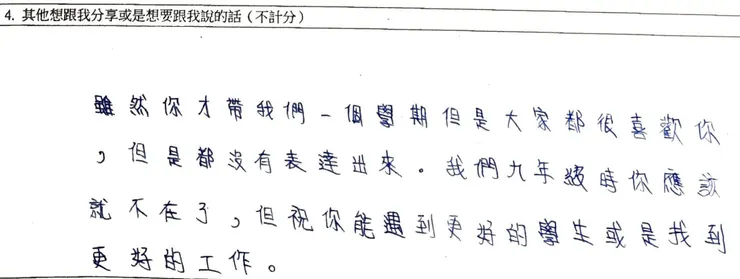 4. 其他想跟我分享或是想要跟我說的話（不計分）
雖然你才帶我們一個學期但是大家都很喜歡你
，但是都沒有表達出來。我們九年級時你應該
就不在了，但祝你能遇到更好的學生或是找到
更好的工作。